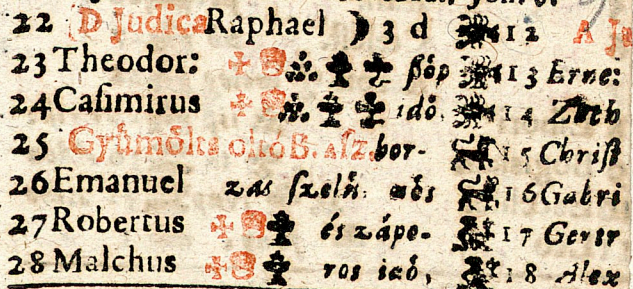 22 D Judica Raphael 3 d 12 A Ju
23 Theodor: ſzép 13 Erne:
24 Caſimirus idö. 14 Zach
25 Gyümölts oltó B. aſz. bor- 15 Chriſt
26 Emanuel zas ſzelẽ. 16 Gabri
27 Robertus és zápo- 17 Gertr
28 Malchus ros idö, 18 Alex